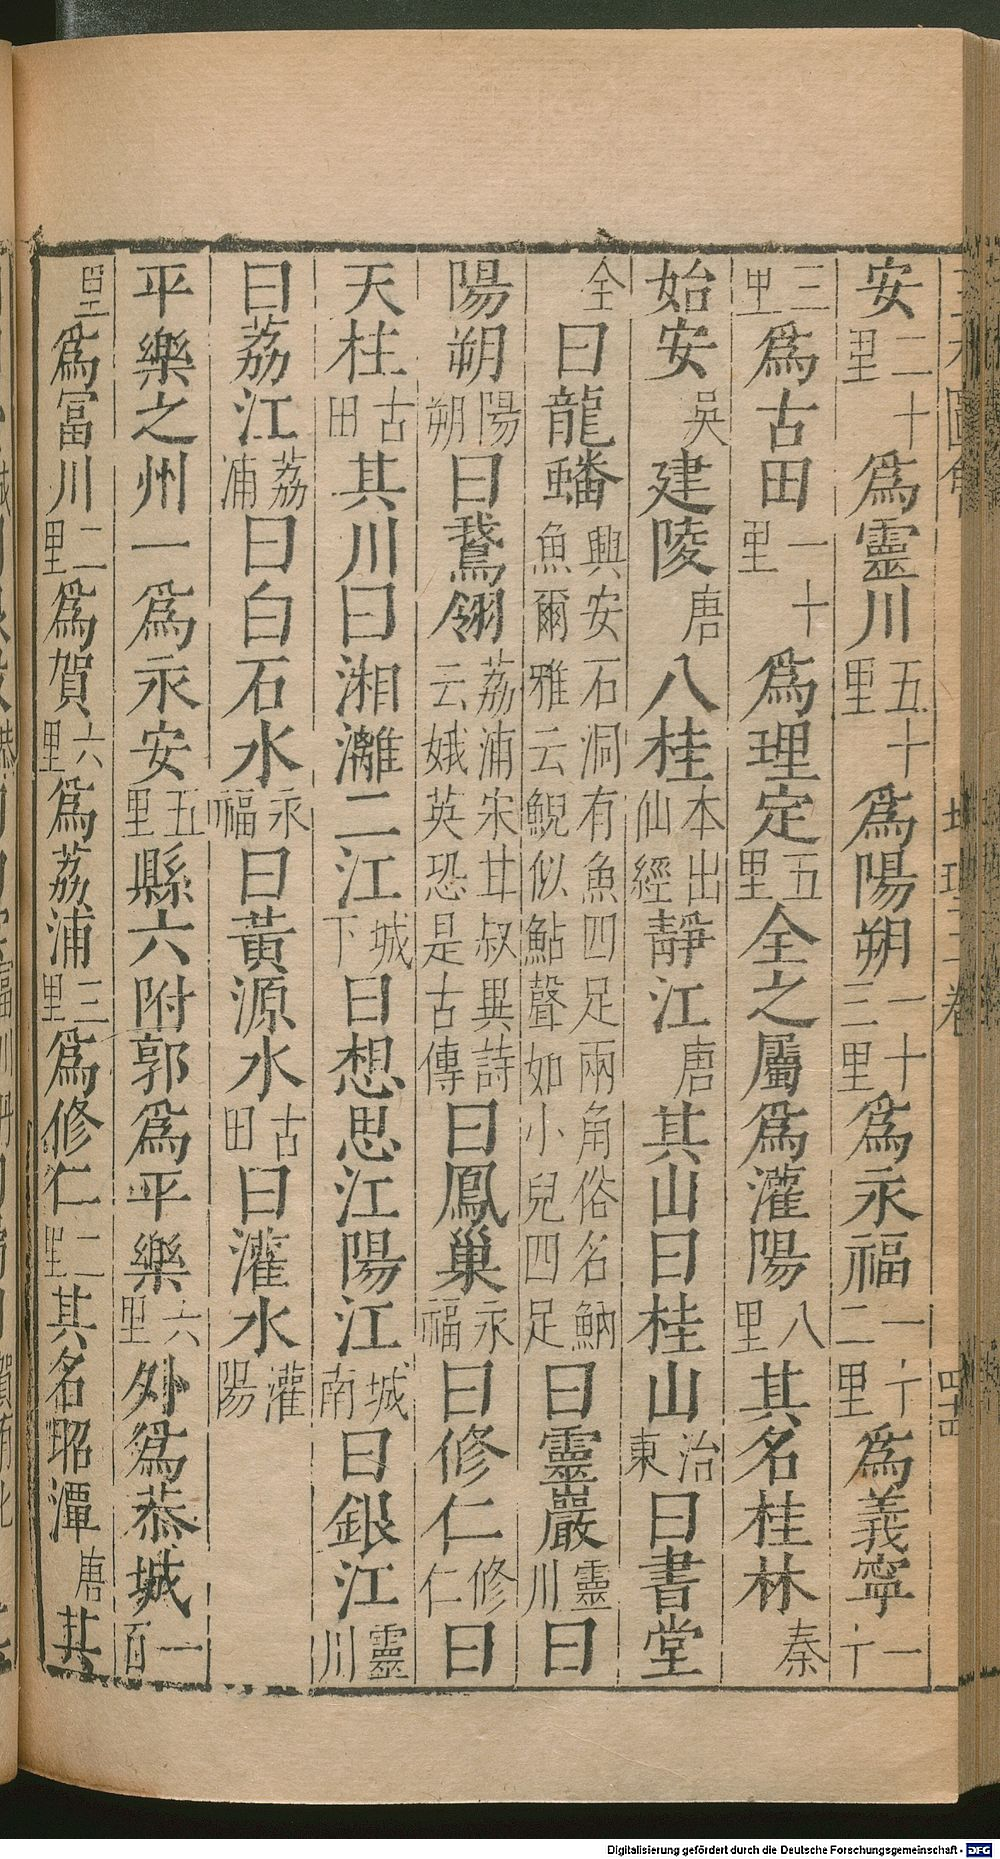 安二十里爲靈川五十里爲陽朔一十三里爲永福一十二里爲義寧一十
三里爲古田一十里爲理定五里全之屬爲灌陽八里其名桂林秦
始安吳建陵唐八桂本出仙經靜江唐其山曰桂山治東曰書堂
全曰龍蟠興安石洞有魚四足兩角俗名魶魚爾雅云鯢似鮎聲如小兒四足曰靈巖靈川曰
陽朔陽朔曰鵞翎荔浦宋甘叔異詩云娥英恐是古傳曰鳳巢永福曰修仁修仁曰
天柱古田其川曰湘灕二江城下曰想思江陽江城南曰銀江靈川
曰荔江荔浦曰白石水永福曰黃源水古田曰灌水灌陽
平樂之州一爲永安五里縣六附郭爲平樂六里外爲恭城一百
里爲富川二里爲賀六里爲荔浦三里爲修仁二里其名昭潭唐其
Digitalisierung gefördert durch die Deutsche Forschungsgemeinschaft - DFG